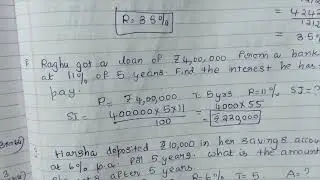 R = 3.5%
1212
4242
1212
3.5%
Raghu got a loan of ₹4,00,000 from a bank
at 11% of 5 years. Find the interest he has
pay.
P = ₹4,00,000 T = 5 yrs R = 11% SI = ?
SI = 400000 x 5 x 11 / 100 = 4000 x 55
= ₹220000
Harsha deposited ₹10,000 in her savings account
at 6% p.a. for 5 years. what is the amount
after 5 years.
R = 6% T = 5 A = ?